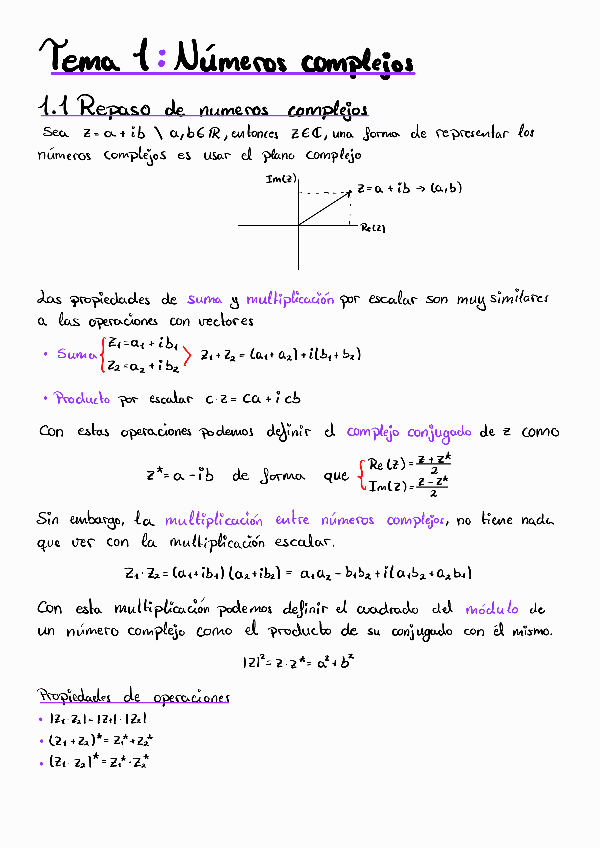 Tema 1: Números complejos
1.1 Repaso de numeros complejos
Sea z = a + ib \ a, b ∈ ℝ, entonces z ∈ ℂ, una forma de representar los
números complejos es usar el plano complejo
Im(z)
z = a + ib → (a, b)
Re(z)
Las propiedades de suma y multiplicación por escalar son muy similares
a las operaciones con vectores
• Suma { z₁ = a₁ + ib₁
z₂ = a₂ + ib₂ } z₁ + z₂ = (a₁ + a₂) + i(b₁ + b₂)
• Producto por escalar c·z = ca + i cb
Con estas operaciones podemos definir el complejo conjugado de z como
z* = a - ib de forma que { Re(z) = (z + z*)/2
Im(z) = (z - z*)/2
Sin embargo, la multiplicación entre números complejos, no tiene nada
que ver con la multiplicación escalar.
z₁·z₂ = (a₁ + ib₁)(a₂ + ib₂) = a₁a₂ - b₁b₂ + i(a₁b₂ + a₂b₁)
Con esta multiplicación podemos definir el cuadrado del módulo de
un número complejo como el producto de su conjugado con él mismo.
|z|² = z·z* = a² + b²
Propiedades de operaciones
• |z₁·z₂| = |z₁|·|z₂|
• (z₁ + z₂)* = z₁* + z₂*
• (z₁·z₂)* = z₁*·z₂*